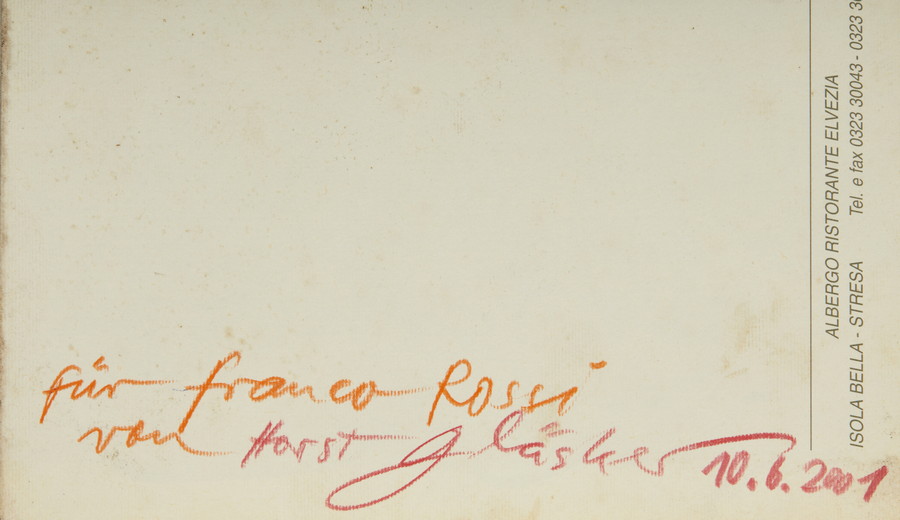 für Franco Rossi
von Horst Gläsker 10.6.2001
ALBERGO RISTORANTE ELVEZIA
ISOLA BELLA - STRESA Tel. e fax 0323 30043 - 0323